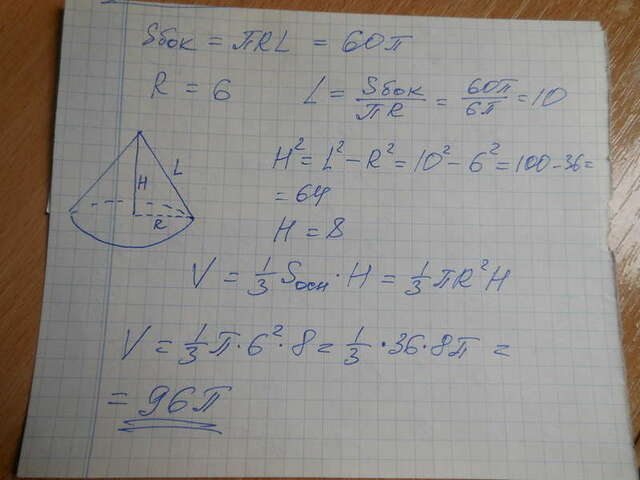 Sбок = πRL = 60π
R = 6   L = Sбок/πR = 60π/6π = 10
H² = L² - R² = 10² - 6² = 100 - 36 =
= 64
H = 8
H
L
R
V = 1/3 Sосн · H = 1/3 πR²H
V = 1/3 π · 6² · 8 = 1/3 · 36 · 8π =
= 96π